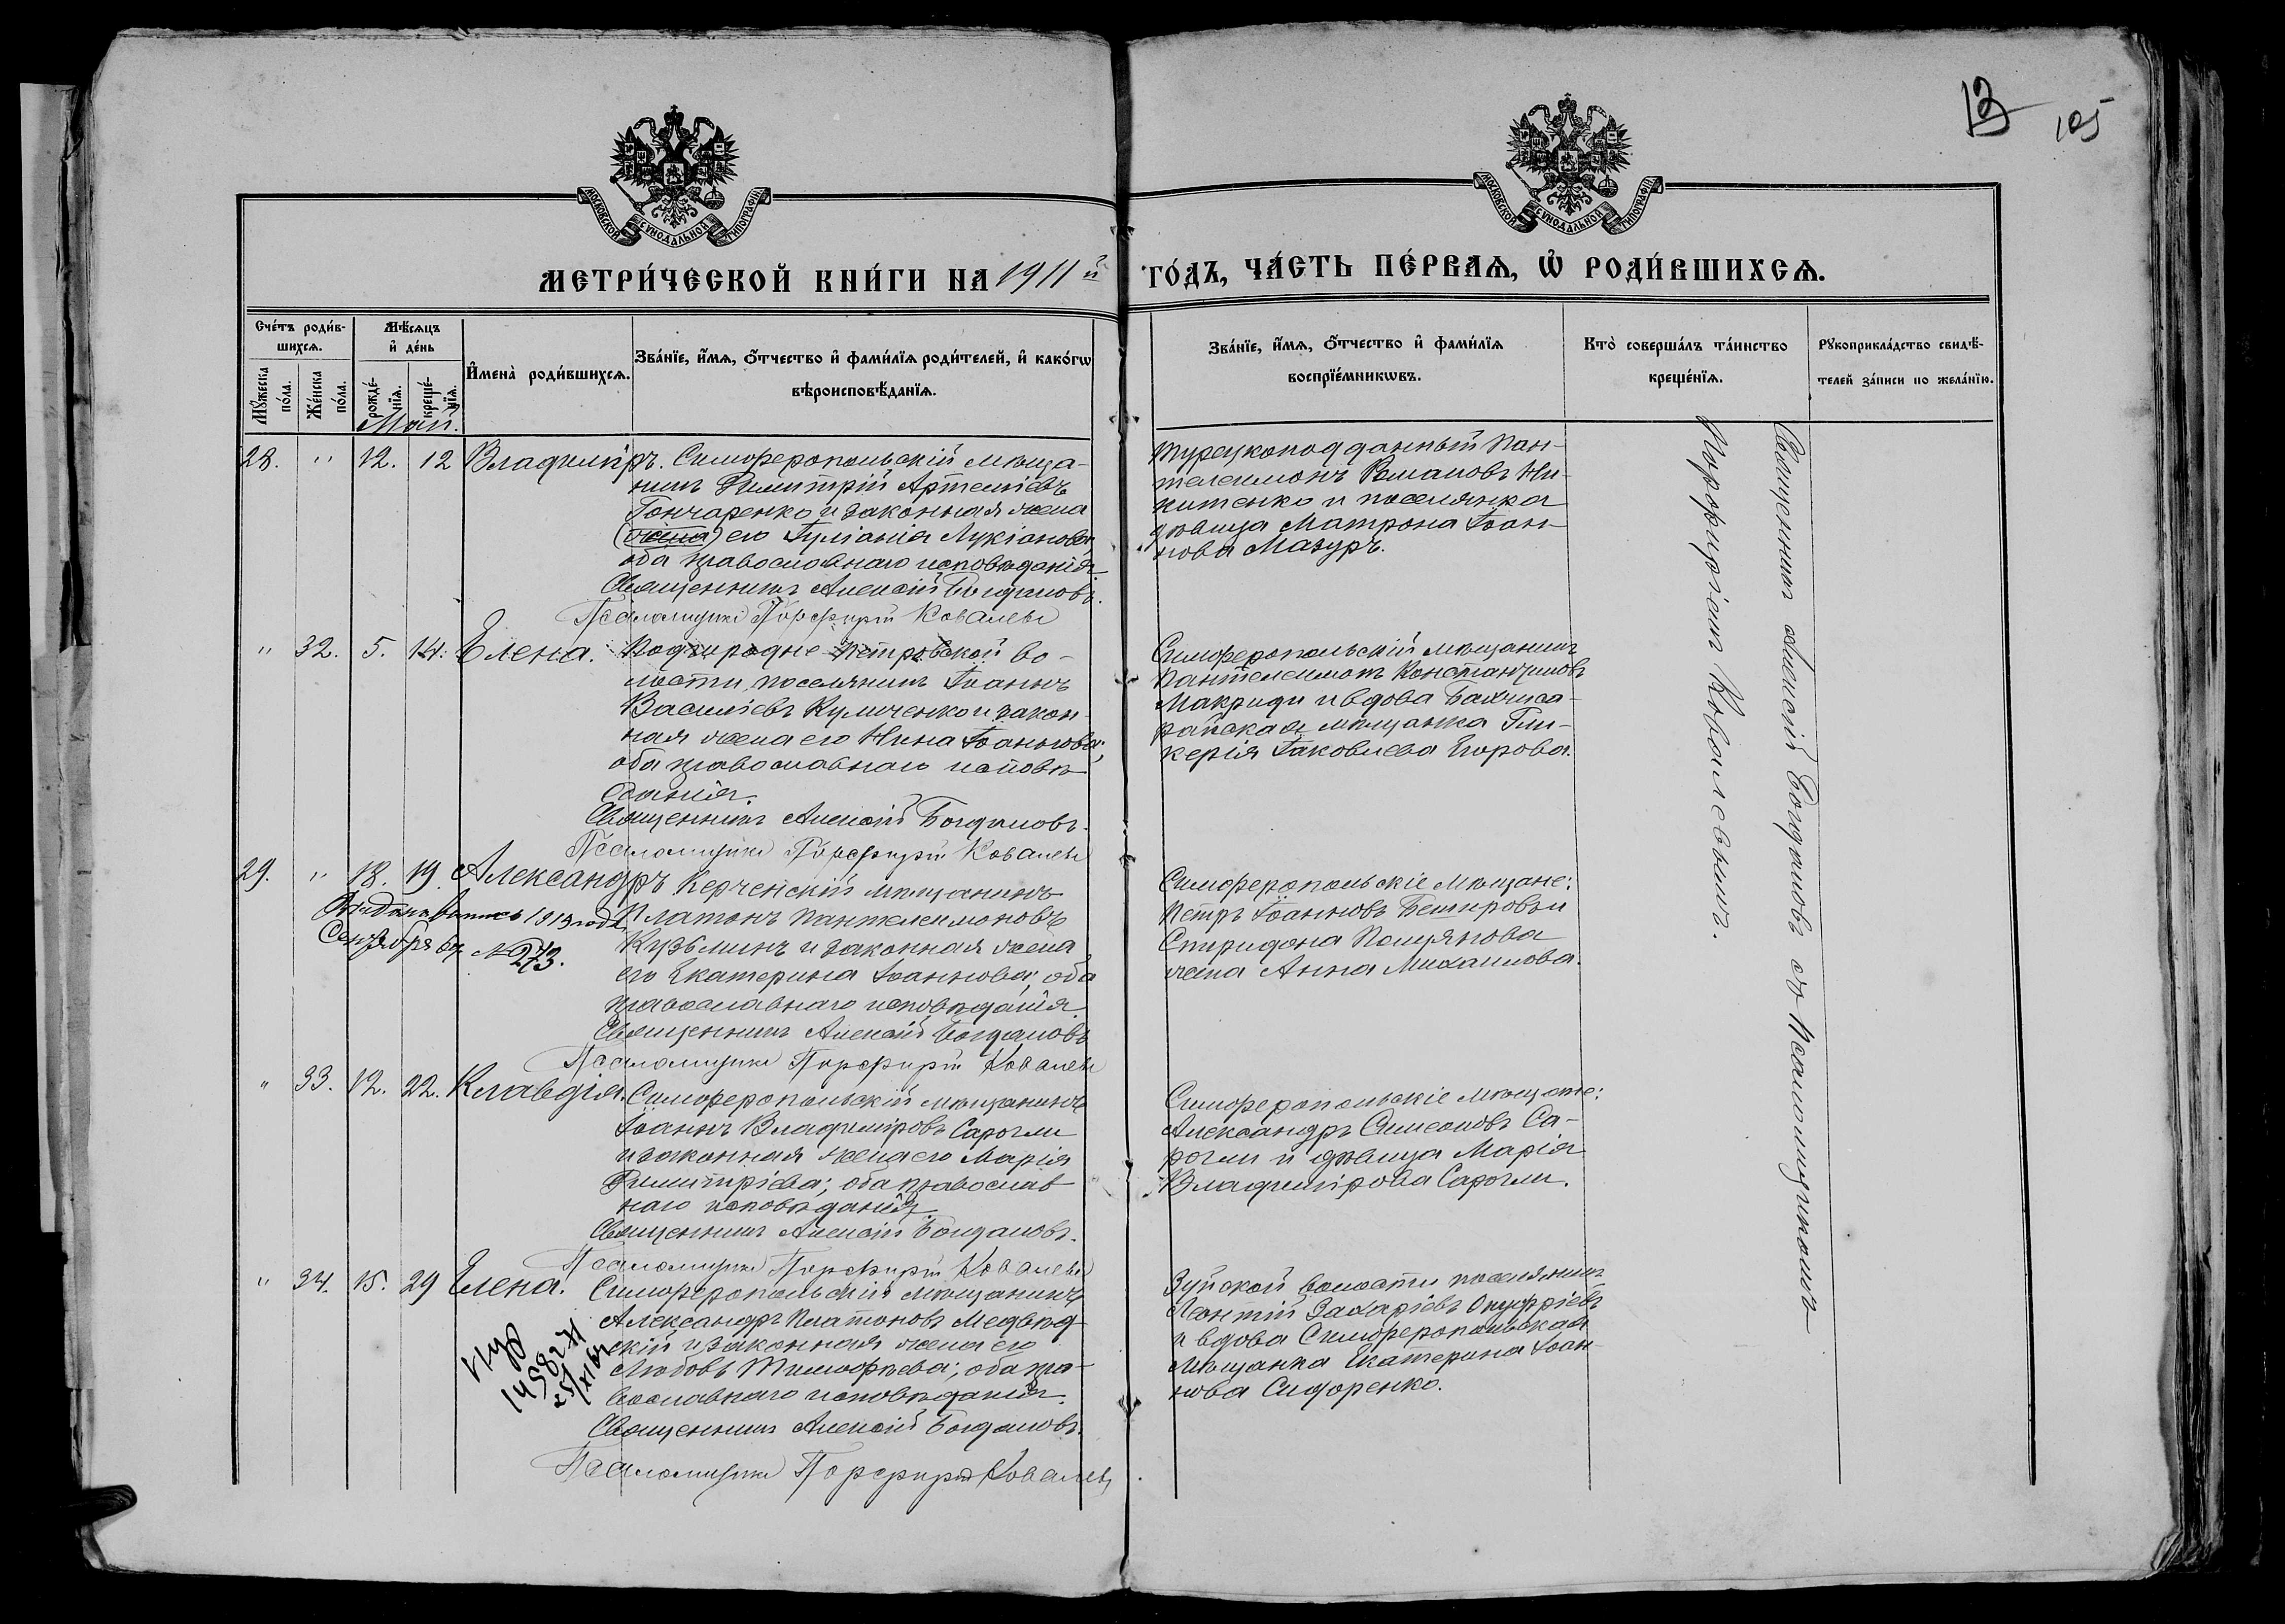 13 105
МОСКОВСКОЙ СУНОДАЛЬНОЙ ТИПОГРАФІИ
МОСКОВСКОЙ СУНОДАЛЬНОЙ ТИПОГРАФІИ
МЕТРИ́ЧЕСКОЙ КНИ́ГИ НА 1911 й ГО́ДЪ, ЧА́СТЬ ПЕ́РВАѦ, Ѽ РОДИ́ВШИХСѦ.
Сче́тъ роди́в-
шихсѧ.
Мꙋ́жеска
по́ла.
Же́нска
по́ла.
Мѣ́сѧцъ
и҆ де́нь
рожде́-
нїѧ.
креще́-
нїѧ.
И҆мена̀ роди́вшихсѧ.
Зва́нїе, и҆́мѧ, ѻ҆́тчество и҆ фами́лїѧ роди́телей, и҆ како́гѡ
вѣроисповѣ́данїѧ.
Зва́нїе, и҆́мѧ, ѻ҆́тчество и҆ фами́лїѧ
воспрїе́мникѡвъ.
Кто̀ соверша́лъ та́инство
креще́нїѧ.
Рꙋкоприкла́дство свидѣ́-
телей за́писи по жела́нїю.
Май.
28. " 12. 12 Владиміръ. Симферопольскій мѣща-
нинъ Димитрій Артеміевъ
Гончаренко и законная жена
(жена) его Іуліанія Лукіанова,
оба православнаго исповѣданія.
Священникъ Алексій Богдановъ.
Псаломщикъ Порфирій Ковалевъ
Турецкоподданный Пан-
телеимонъ Романовъ Ни-
китенко и поселянка
дѣвица Матрона Іоан-
нова Мазуръ.
" 32. 5. 14. Елена. Подгородне-Петровской во-
лости, поселянинъ Іоаннъ
Василіевъ Куличенко и закон-
ная жена его Нина Іоаннова;
оба православнаго исповѣ-
данія.
Священникъ Алексій Богдановъ.
Псаломщикъ Порфирій Ковалевъ
Симферопольскій мѣщанинъ
Пантелеимонъ Константиновъ
Макриди и вдова Бахчиса-
райская мѣщанка Гли-
керія Іаковлева Егорова.
29. " 18. 19. Александръ Керченскій мѣщанинъ
Платонъ Пантелеимоновъ
Кузьминъ и законная жена
его Екатерина Іоаннова; оба
православнаго исповѣданія.
Священникъ Алексій Богдановъ
Псаломщикъ Порфирій Ковалевъ
Выдана выпись 1913 года
Сентября 6 № 273.
Симферопольскіе мѣщане:
Петръ Іоанновъ и
Спиридона
жена Анна Михаилова.
" 33. 12. 22. Клавдія. Симферопольскій мѣщанинъ
Іоаннъ Владиміровъ Сарогли
и законная жена его Марія
Димитріева; оба православ
наго исповѣданія.
Священникъ Алексій Богдановъ.
Псаломщикъ Порфирій Ковалевъ
Симферопольскіе мѣщане:
Александръ Симеоновъ Са-
рогли и дѣвица Марія
Владимірова Сарогли.
" 34. 15. 29 Елена. Симферопольскій мѣщанинъ
Александръ Платоновъ Медвѣд-
скій и законная жена его
Любовь Тимофѣева; оба пра-
вославнаго исповѣданія.
Священникъ Алексій Богдановъ.
Псаломщикъ Порфирій Ковалевъ
Зуйской волости поселянинъ
Леонтій Захаріевъ Онуфріевъ
и вдова Симферопольская
мѣщанка Екатерина Іоан-
нова Сидоренко.
Священникъ Алексій Богдановъ съ Псаломщикомъ
Порфиріемъ Ковалевымъ.